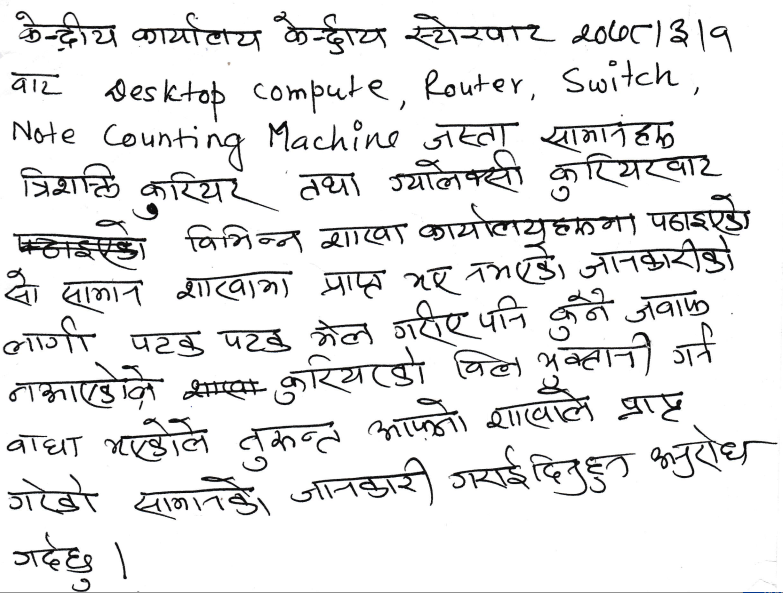 केन्द्रीय कार्यालय केन्द्रीय स्टोरवाट २०७८।३।१
वाट Desktop compute, Router, Switch,
Note Counting Machine जस्ता सामानहरू
त्रिशक्ति कुरियर तथा ग्यालेक्सी कुरियरवाट
पठाइएको विभिन्न शाखा कार्यालयहरूमा पठाइएको
सो सामान शाखामा प्राप्त भए नभएको जानकारीको
लागी पटक पटक मेल गरीए पनि कुनै जवाफ
नआएकोले शाखा कुरियरको विल भुक्तानी गर्न
वाधा भएकोले तुरुन्त आफ्नो शाखाले प्राप्त
गरेको सामानको जानकारी गराईदिनुहुन अनुरोध
गर्दछु।